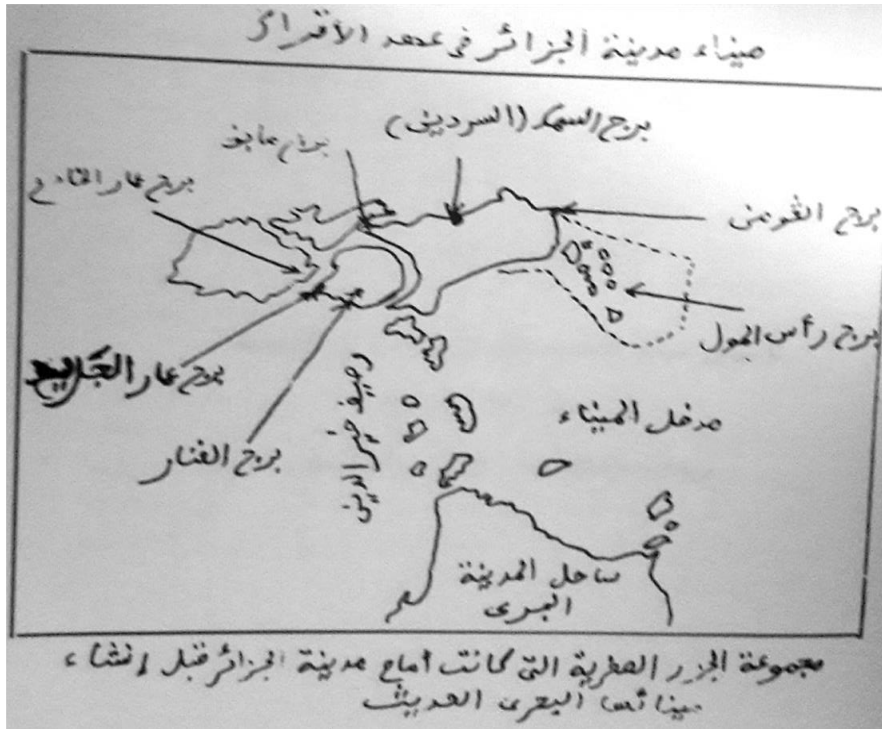 ميناء مدينة الجزائر في عهد الأتراك
برج السمك (السردين)
برج
برج عمار
برج القومن
برج رأس المول
برج عمار
برج الفنار
رصيف خير الدين
مدخل الميناء
ساحل المدينة
البحرى
مجموعة الجزر الصخرية التى كانت أمام مدينة الجزائر قبل إنشاء
مينائها البحرى الحديث